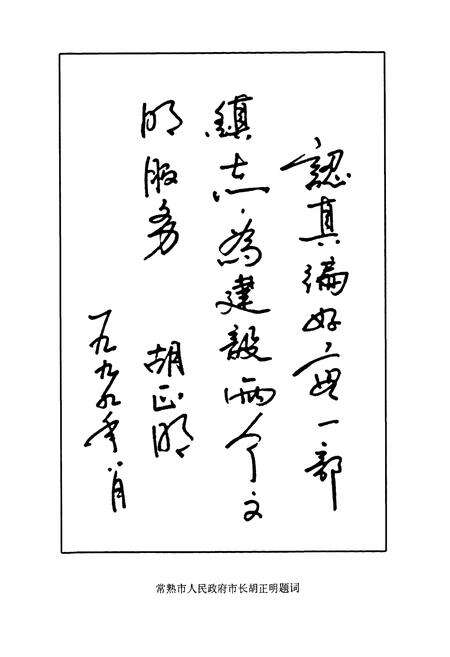 認真編好每一部
鎮志,為建設兩个文
明服务
胡正明
一九九九年八月
常熟市人民政府市长胡正明题词